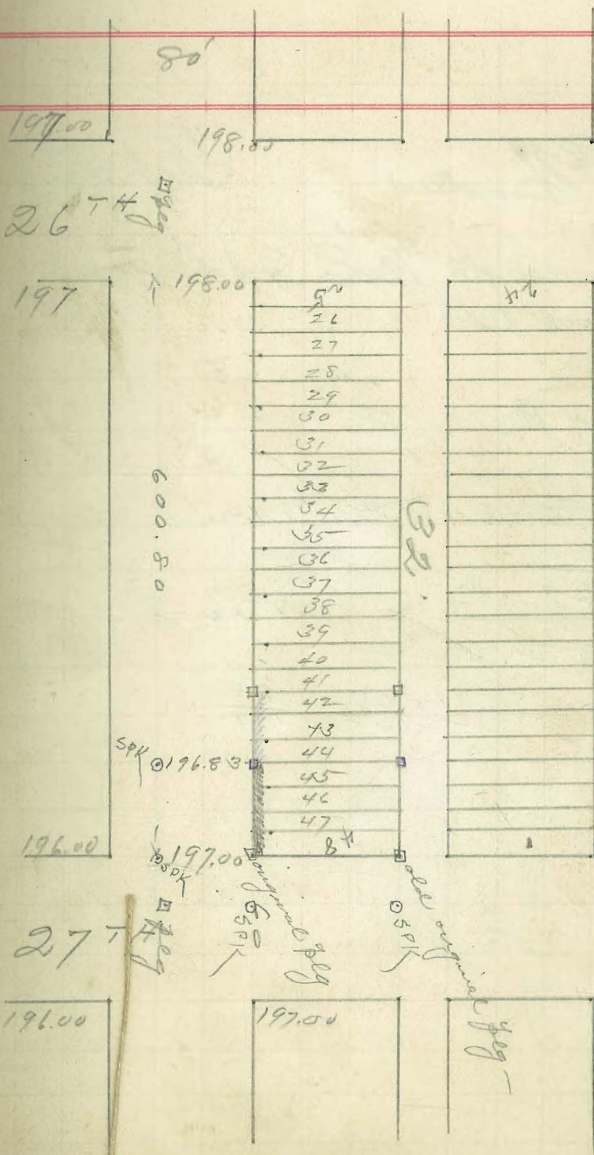 80'
197.00
198.00
26TH
peg
197
198.00
25
24
26
27
28
29
30
31
32
33
34
35
36
37
38
39
40
41
42
43
44
45
46
47
48
1
600.80
32'
SPK
196.83
196.00
197.00
SPK
27TH
peg
60
SPK
original peg
SPK
old original peg
196.00
197.00